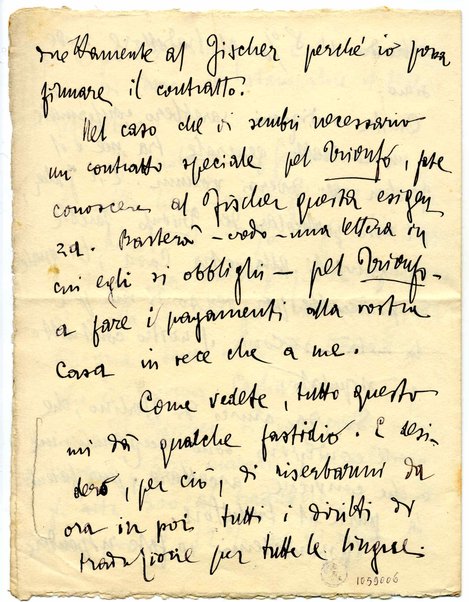 direttamente al Fischer perché io possa
firmare il contratto.
Nel caso che vi sembri necessario
un contratto speciale pel Trionfo, fate
conoscere al Fischer questa esigen
za. Basterà – credo – una lettera in
cui egli si obblighi – pel Trionfo –
a fare i pagamenti alla vostra
Casa in vece che a me.
Come vedete, tutto questo
mi dà qualche fastidio. E desi-
dero, per ciò, di riserbarmi da
ora in poi tutti i diritti di
traduzione per tutte le lingue.
1059006